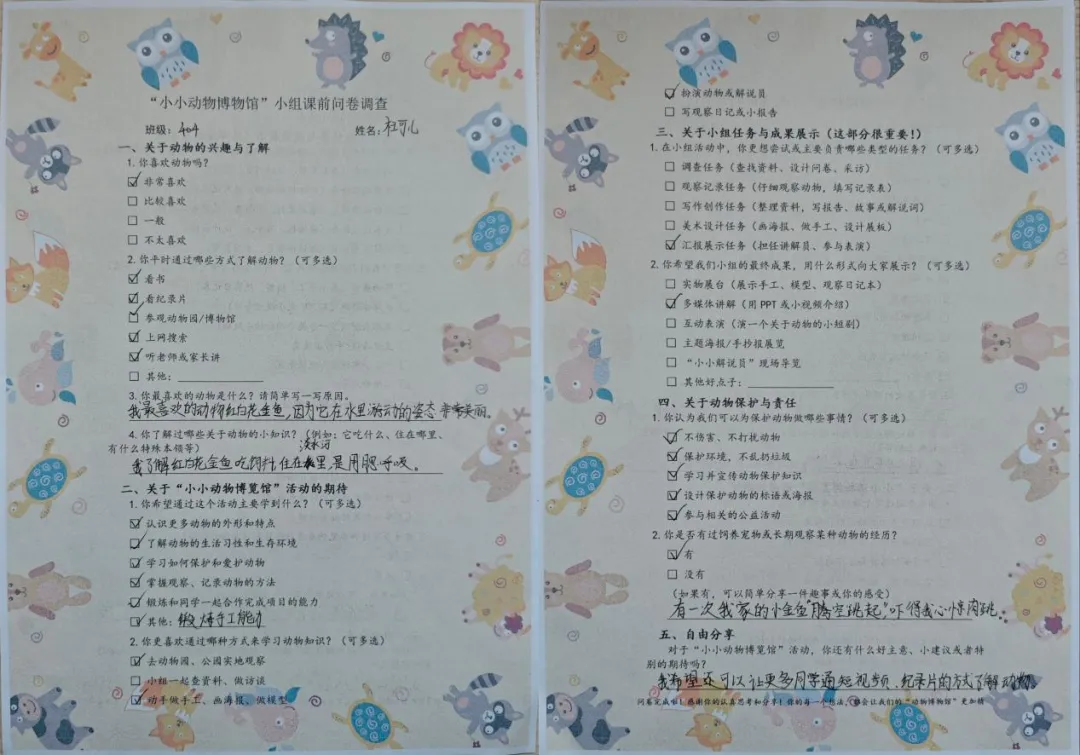 “小小动物博物馆”小组课前问卷调查
班级：404 姓名：杜可儿
一、关于动物的兴趣与了解
1. 你喜欢动物吗？
☑ 非常喜欢
☐ 比较喜欢
☐ 一般
☐ 不太喜欢
2. 你平时通过哪些方式了解动物？（可多选）
☑ 看书
☑ 看纪录片
☑ 参观动物园/博物馆
☑ 上网搜索
☑ 听老师或家长讲
☐ 其他：
3. 你最喜欢的动物是什么？请简单写一写原因。
我最喜欢的动物红白花金鱼，因为它在水里游动的姿态非常美丽。
4. 你了解过哪些关于动物的小知识？（例如：它吃什么、住在哪里、
有什么特殊本领等）
我了解红白花金鱼吃饲料，住在淡水河里，是用腮呼吸。
二、关于“小小动物博览馆”活动的期待
1. 你希望通过这个活动主要学到什么？（可多选）
☑ 认识更多动物的外形和特点
☑ 了解动物的生活习性和生存环境
☑ 学习如何保护和爱护动物
☑ 掌握观察、记录动物的方法
☑ 锻炼和同学一起合作完成项目的能力
☑ 其他：锻炼手工能力
2. 你更喜欢通过哪种方式来学习动物知识？（可多选）
☑ 去动物园、公园实地观察
☐ 小组一起查资料、做访谈
☑ 动手做手工、画海报、做模型
☑ 扮演动物或解说员
☐ 写观察日记或小报告
三、关于小组任务与成果展示（这部分很重要！）
1. 在小组活动中，你更想尝试或主要负责哪些类型的任务？（可多选）
☐ 调查任务（查找资料、设计问卷、采访）
☐ 观察记录任务（仔细观察动物，填写记录表）
☐ 写作创作任务（整理资料，写报告、故事或解说词）
☐ 美术设计任务（画海报、做手工、设计展板）
☑ 汇报展示任务（担任讲解员、参与表演）
2. 你希望我们小组的最终成果，用什么形式向大家展示？（可多选）
☐ 实物展台（展示手工、模型、观察日记本）
☑ 多媒体讲解（用 PPT 或小视频介绍）
☐ 互动表演（演一个关于动物的小短剧）
☐ 主题海报/手抄报展览
☐ “小小解说员”现场导览
☐ 其他好点子：
四、关于动物保护与责任
1. 你认为我们可以为保护动物做哪些事情？（可多选）
☑ 不伤害、不打扰动物
☑ 保护环境，不乱扔垃圾
☑ 学习并宣传动物保护知识
☑ 设计保护动物的标语或海报
☑ 参与相关的公益活动
2. 你是否有过饲养宠物或长期观察某种动物的经历？
☑ 有
☐ 没有
（如果有，可以简单分享一件趣事或你的感受）
有一次我家的小金鱼“腾空跳起”吓得我心惊肉跳。
五、自由分享
对于“小小动物博览馆”活动，你还有什么好主意、小建议或者特
别的期待吗？
我希望还可以让更多同学通短视频、纪录片的方式了解动物。
问卷完成啦！感谢你的认真思考和分享！你的每一个想法，都会让我们的“动物博物馆”更加精